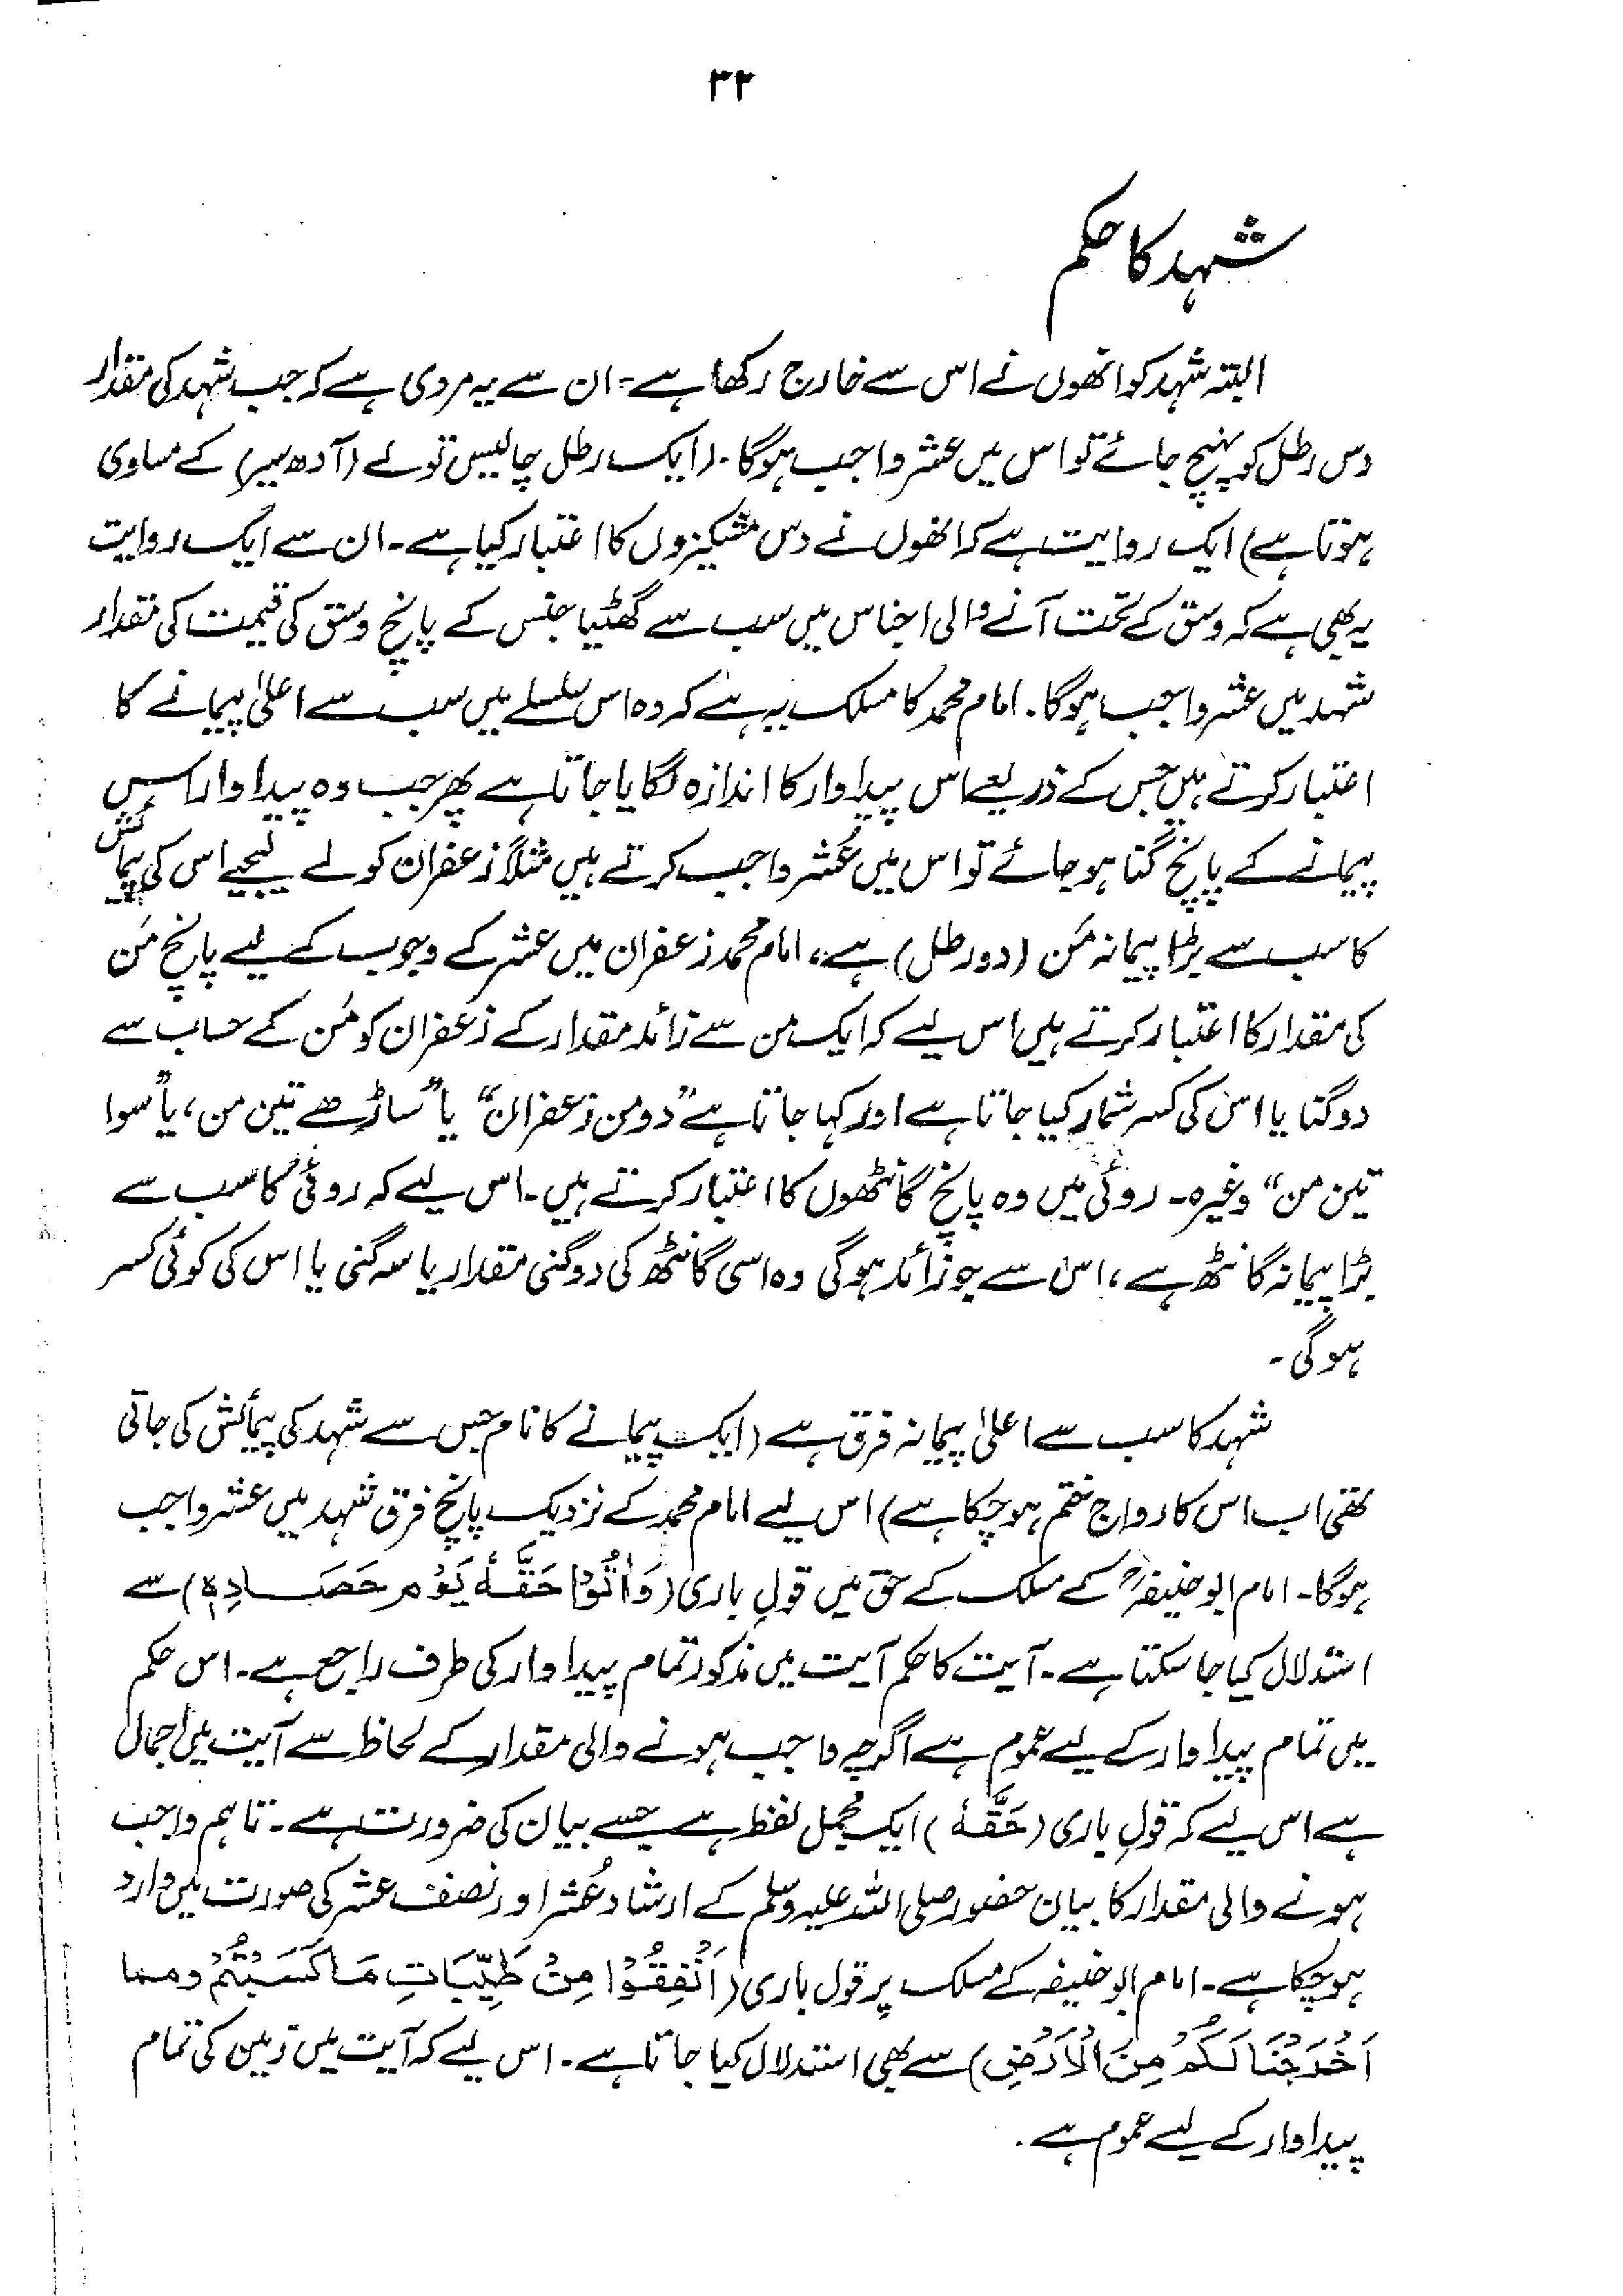 ۳۲
شہد کا حکم
البتہ شہد کو انھوں نے اس سے خارج رکھا ہے۔ ان سے یہ مروی ہے کہ جب شہد کی مقدار
دس رطل کو پہنچ جائے تو اس میں عشر واجب ہوگا۔ (ایک رطل چالیس تولے (آدھ سیر) کے مساوی
ہوتا ہے) ایک روایت ہے کہ انھوں نے دس مشکیزوں کا اعتبار کیا ہے۔ ان سے ایک روایت
یہ بھی ہے کہ وسق کے تحت آنے والی اجناس میں سب سے گھٹیا جنس کے پانچ وسق کی قیمت کی مقدار
شہد میں عشر واجب ہوگا۔ امام محمد کا مسلک یہ ہے کہ وہ اس سلسلے میں سب سے اعلیٰ پیمانے کا
اعتبار کرتے ہیں جس کے ذریعے اس پیداوار کا اندازہ لگایا جاتا ہے پھر جب وہ پیداوار اس
پیمانے کے پانچ گنا ہو جائے تو اس میں عُشر واجب کرتے ہیں مثلاً زعفران کو لے لیجیے اس کی پیمائش
کا سب سے بڑا پیمانہ مَن (دو رطل) ہے، امام محمد زعفران میں عشر کے وجوب کے لیے پانچ مَن
کی مقدار کا اعتبار کرتے ہیں اس لیے کہ ایک من سے زائد مقدار کے زعفران کو مَن کے حساب سے
دو گنا یا اس کی کسر شمار کیا جاتا ہے اور کہا جاتا ہے "دو من زعفران" یا "ساڑھے تین من، یا "سوا
تین من" وغیرہ۔ روئی میں وہ پانچ گانٹھوں کا اعتبار کرتے ہیں۔ اس لیے کہ روئی کا سب سے
بڑا پیمانہ گانٹھ ہے، اس سے جو زائد ہوگی وہ اسی گانٹھ کی دوگنی مقدار یا سہ گنی یا اس کی کوئی کسر
ہوگی۔
شہد کا سب سے اعلیٰ پیمانہ فرق ہے (ایک پیمانے کا نام جس سے شہد کی پیمائش کی جاتی
تھی اب اس کا رواج ختم ہو چکا ہے) اس لیے امام محمد کے نزدیک پانچ فرق شہد میں عشر واجب
ہوگا۔ امام ابو حنیفہؒ کے مسلک کے حق میں قولِ باری (وَاٰتُوْا حَقَّهٗ یَوْمَ حَصَادِہٖ) سے
استدلال کیا جا سکتا ہے۔ آیت کا حکم آیت میں مذکور تمام پیداوار کی طرف راجع ہے۔ اس حکم
میں تمام پیداوار کے لیے عموم ہے اگرچہ واجب ہونے والی مقدار کے لحاظ سے آیت میں اجمال
ہے اس لیے کہ قولِ باری (حَقَّهٗ) ایک مجمل لفظ ہے جسے بیان کی ضرورت ہے۔ تاہم واجب
ہونے والی مقدار کا بیان حضور صلی اللہ علیہ وسلم کے ارشاد عُشر اور نصف عشر کی صورت میں وارد
ہو چکا ہے۔ امام ابو حنیفہ کے مسلک پر قول باری (اَنْفِقُوْا مِنْ طَیِّبَاتِ مَا کَسَبْتُمْ ومما
اَخْرَجْنَا لَکُمْ مِنَ الْاَرْضِ) سے بھی استدلال کیا جاتا ہے۔ اس لیے کہ آیت میں زمین کی تمام
پیداوار کے لیے عموم ہے۔